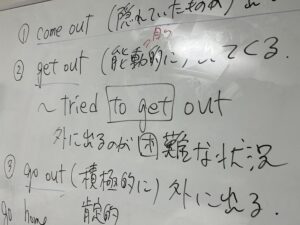 ① come out (隠れていたものが) 出
② get out (能動的に) 出てくる.
~ tried to get out
外に出るのが困難な状況
③ go out (積極的に) 外に出る.
go home 肯定的